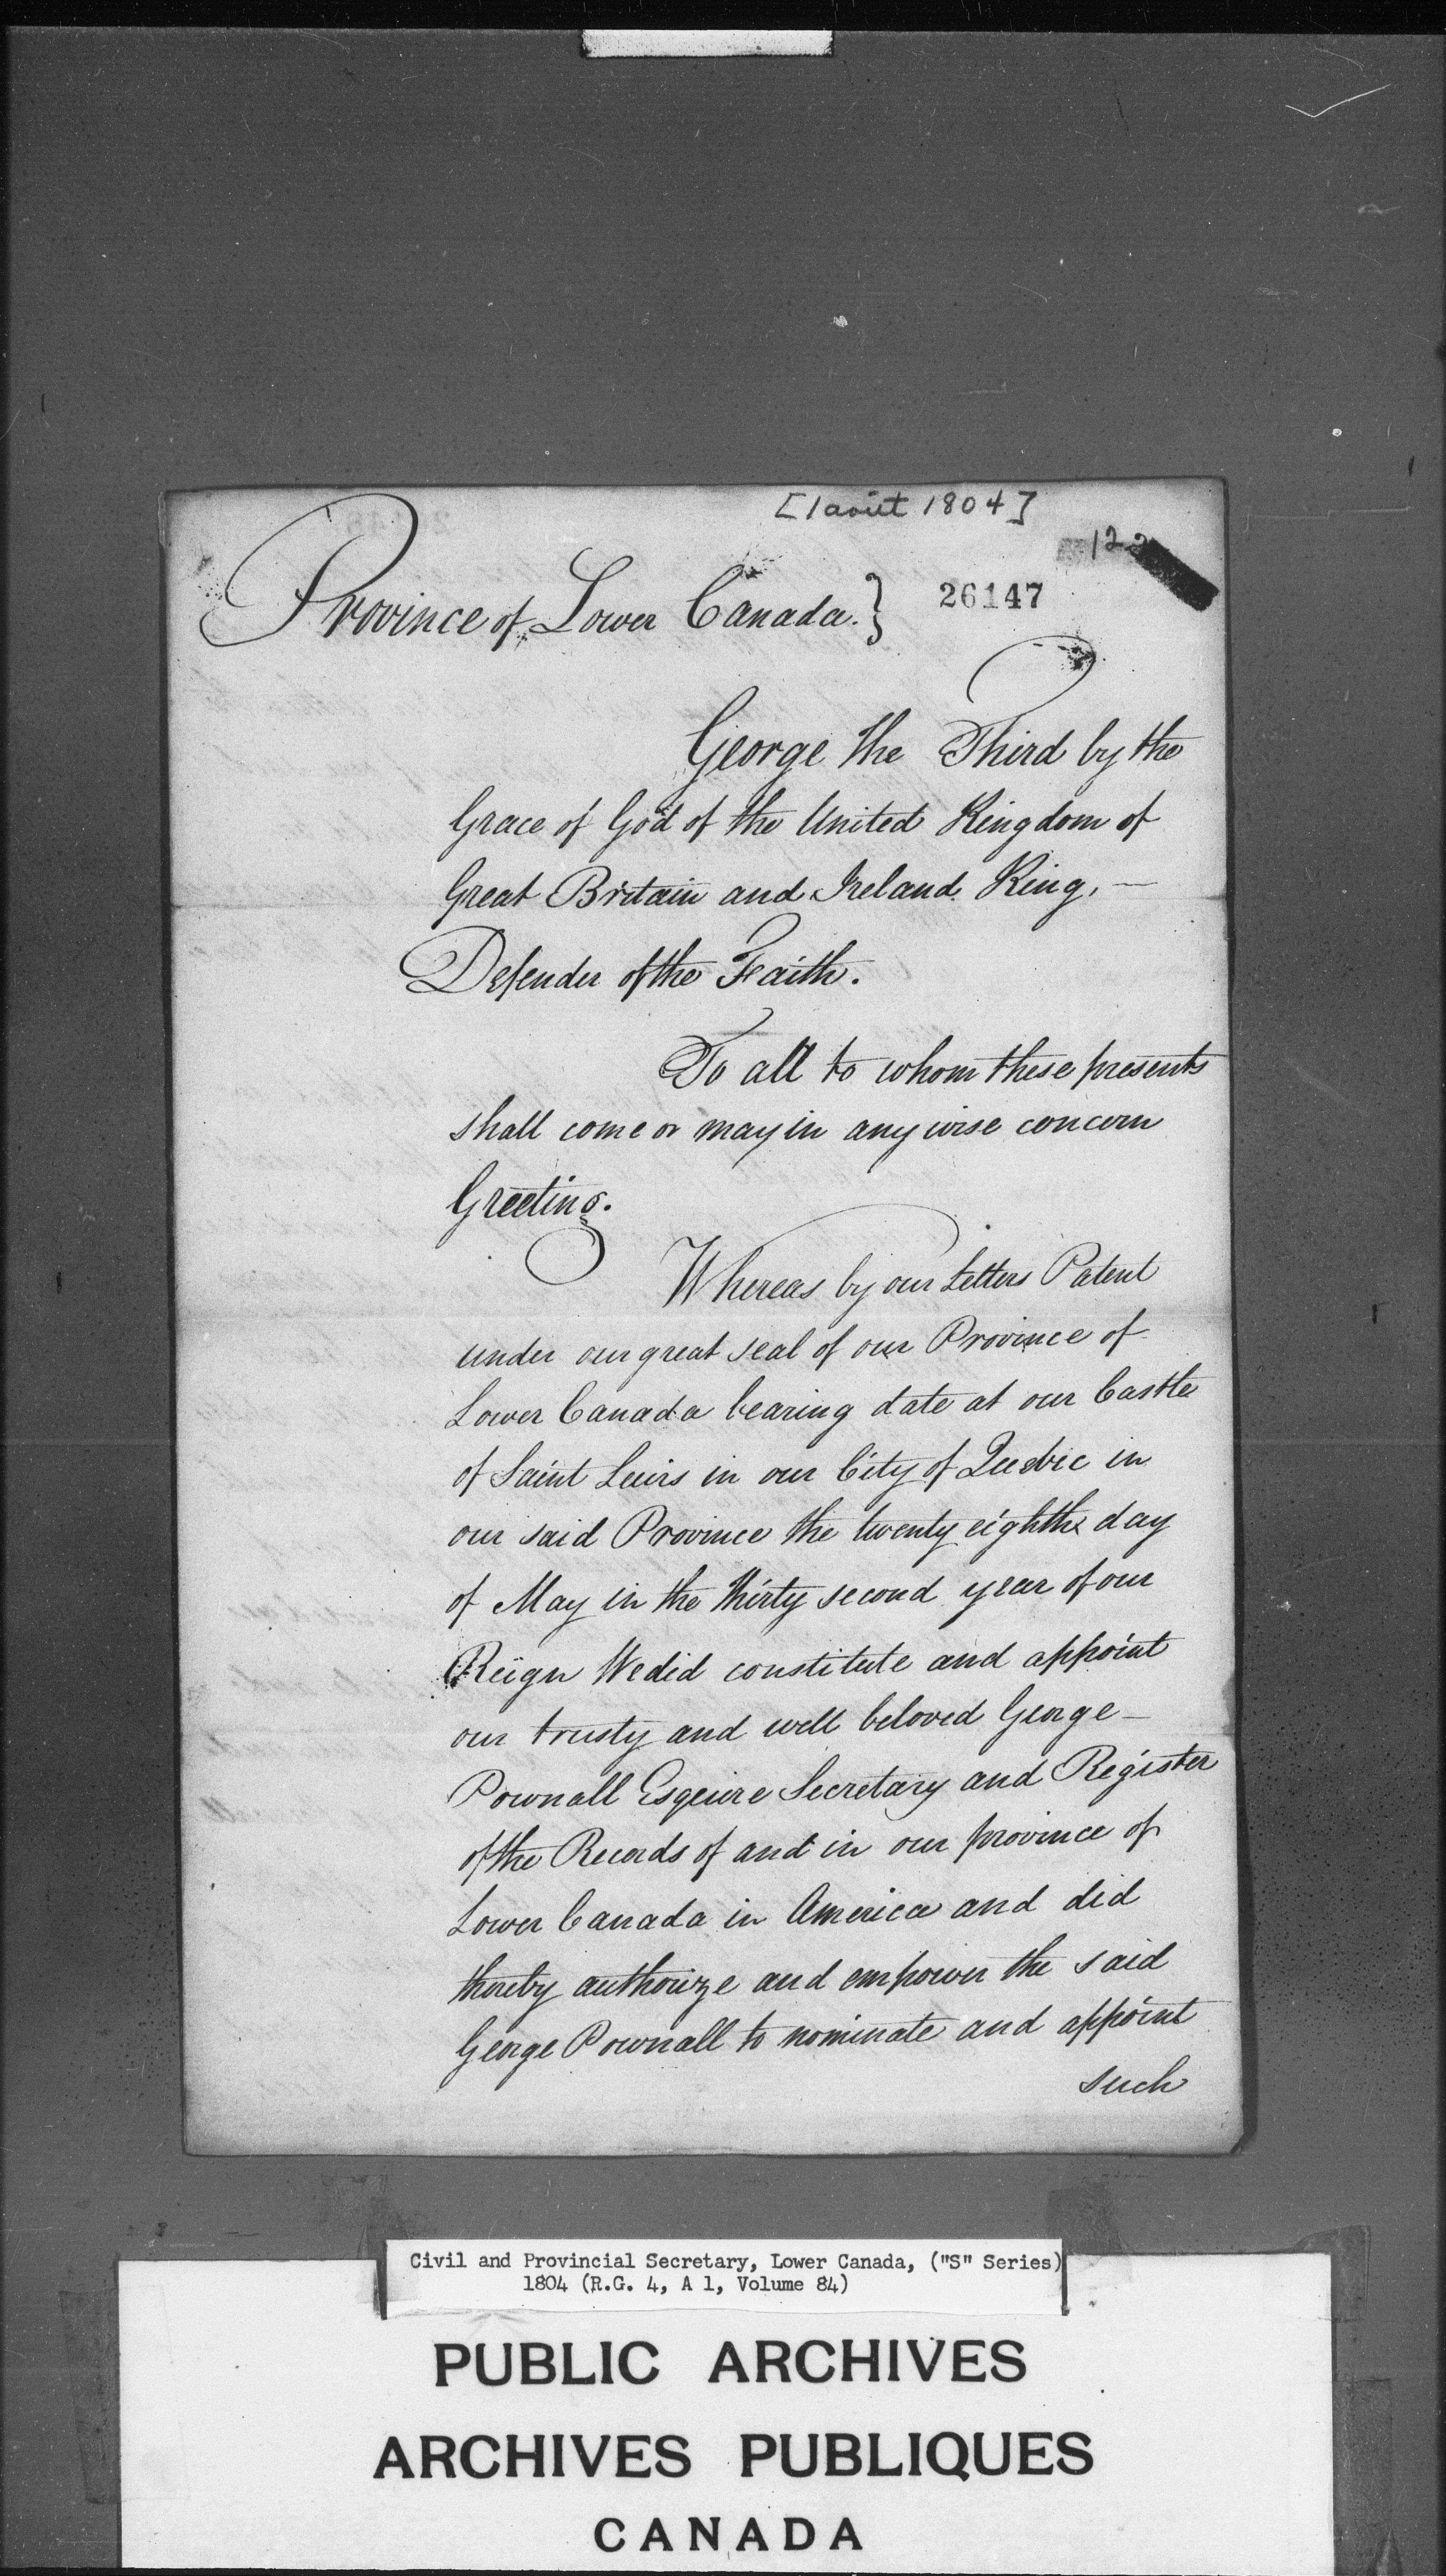 [1 août 1804]
122
Province of Lower Canada.}
26147
George the Third by the
Grace of God of the United Kingdom of
Great Britain and Ireland King, —
Defender of the Faith.
To all to whom these presents
shall come or may in any wise concern
Greeting.
Whereas by our Letters Patent
under our great seal of our Province of
Lower Canada bearing date at our Castle
of Saint Lewis in our City of Quebec in
our said Province the twenty eighth day
of May in the thirty second year of our
Reign We did constitute and appoint
our trusty and well beloved George —
Pownall Esquire Secretary and Register
of the Records of and in our province of
Lower Canada in America and did
thereby authorize and empower the said
George Pownall to nominate and appoint
such
Civil and Provincial Secretary, Lower Canada, ("S" Series)
1804 (R.G. 4, A 1, Volume 84)
PUBLIC ARCHIVES
ARCHIVES PUBLIQUES
CANADA